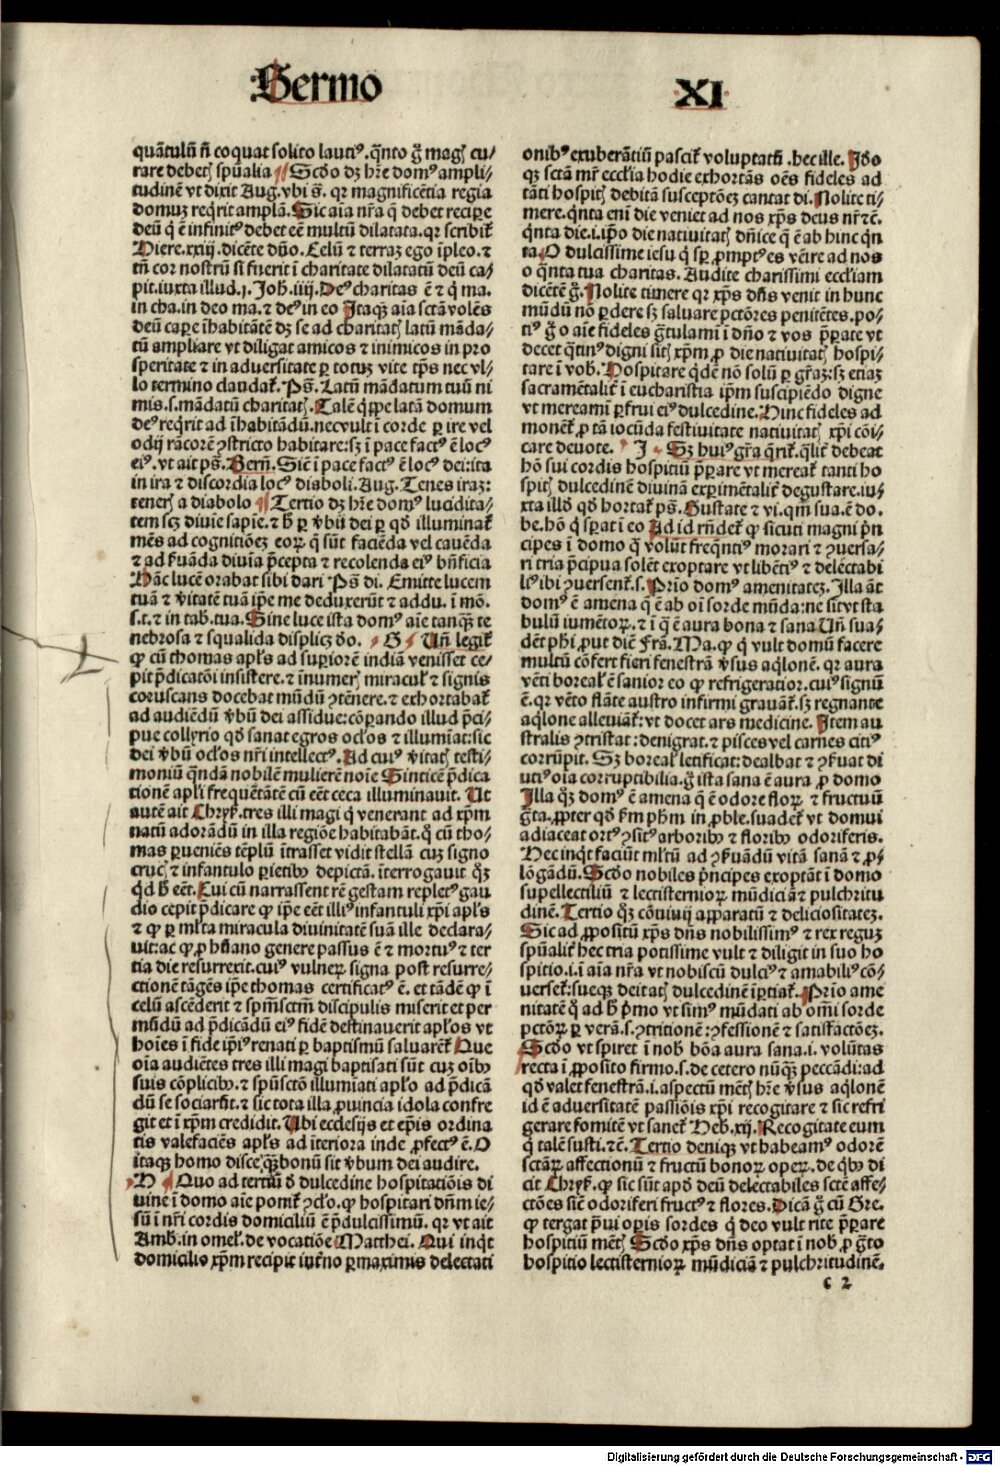 Sermo
XI
quãtulũ ñ coquat solito lautiꝰ. q̃nto g̃ magꝭ cu/
rare debetꝭ spũalia Scḋo dꝫ hr̃e domꝰ ampli/
tudinẽ vt dixit Aug. vbi s̃. qꝛ magnificẽtia regia
domuꝫ reqrit amplã. Sic aĩa nr̃a q̃ debet recipe
deũ q̃ ẽ infinitꝰ debet eẽ multũ dilatata. qꝛ scribit᷑
Hiere. xxiij. dicẽte dño. Celũ ⁊ terraꝫ ego ĩpleo. ⁊
tñ cor nostrũ si fuerit ĩ charitate dilatatũ deũ ca/
pit. iuxta illud. j. Joh. iiij. Deꝰ charitas ẽ ⁊ q̃ ma.
in cha. in deo ma. ⁊ deꝰ in eo Itaqꝫ aĩa sctã volẽs
deũ capꝑe ĩhabitãtẽ dꝫ se ad charitatꝭ latũ mãda/
tũ ampliare vt diligat amicos ⁊ inimicos in pro
speritate ⁊ in aduersitate ꝑ totuꝫ vite tp̃s nec vl/
lo termino claudat᷑. Ps̃. Latũ mãdatum tuũ ni
mis. s. mãdatũ charitatꝭ. Talẽ q̃ppe latã domum
deꝰ reqrit ad ĩhabitãdũ. nec vult ĩ corde ꝑ ire vel
odij rãcorẽ ꝯstricto habitare: sꝫ ĩ pace factꝰ ẽ locꝰ
eiꝰ. vt ait ps̃. Berñ. Sic̃ ĩ pace factꝰ ẽ locꝰ dei: ita
in ira ⁊ discordia locꝰ diaboli. Aug. Tenes iraꝫ:
tenerꝭ a diabolo Tertio dꝫ hr̃e domꝰ lucidita/
tem scꝫ diuie sapie. ⁊ h̃ ꝑ v̓bũ dei ꝑ qḋ illuminat᷑
mẽs ad cognitiõeꝫ eoꝝ q̃ sũt faciẽda vel cauẽda
⁊ ad ẜuãda diuĩa p̃cepta ⁊ recolenda eiꝰ bñficia
Hãc lucẽ orabat sibi dari Ps̃ di. Emitte lucem
tuã ⁊ v̓itatẽ tuã ip̃e me deduxerũt ⁊ addu. ĩ mõ.
s. t. ⁊ in tab. tua. Sine luce ista domꝰ aĩe tanqꝫ te
nebrosa ⁊ squalida displicꝫ ḋo. G Uñ legit᷑
ꝙ cũ thomas apl̃s ad supiorẽ indiã venisset ce/
pit p̃dicatõi insistere. ⁊ ĩnumerꝭ miracul᷑ ⁊ signis
coruscans docebat mũdũ ꝯtẽnere. ⁊ exhortabat᷑
ad audiẽdũ v̓bũ dei assidue: cõpando illud p̃ci/
pue collyrio qḋ sanat egros ocl̃os ⁊ illumĩat: sic
dei v̓bũ ocl̃os nr̃i intellectꝰ. Ad cuiꝰ v̓itatꝭ testi/
moniũ q̃ndã nobilẽ mulierẽ noĩe Sinticẽ p̃dica
tionẽ apl̃i frequẽtãtẽ cũ eẽt ceca illuminauit. Ut
autẽ ait Chryſ. tres illi magi q̃ venerant ad xp̃m
natũ adorãdũ in illa regiõe habitabãt. q̃ cũ tho/
mas ꝑueniẽs tẽplũ ĩtrasset vidit stellã cuꝫ signo
crucꝭ ⁊ infantulo pietibꝰ depictã. ĩterrogauit q̃ꝫ
qḋ h̃ eẽt. Cui cũ narrassent rẽ gestam repletꝰ gau
dio cepit p̃dicare ꝙ ip̃e eẽt illiꝰ infantuli xp̃i apl̃s
⁊ ꝙ ꝑ ml̃ta miracula diuinitatẽ suã ille declara/
uit: ac ꝙ ꝓ hũano genere passus ẽ ⁊ mortuꝰ ⁊ ter
tia die resurrexit. cuiꝰ vulneꝝ signa post resurre/
ctionẽ tãgẽs ip̃e thomas certificatꝰ ẽ. et tãdẽ ꝙ ĩ
celũ ascẽderit ⁊ spm̃sctm̃ discipulis miserit et per
mũdũ ad p̃dicãdũ eiꝰ fidẽ destinauerit apl̃os vt
hoĩes ĩ fide ip̃iꝰ renati ꝑ baptismũ saluarẽt᷑ Que
oĩa audiẽtes tres illi magi baptisati sũt cuꝫ oĩbꝰ
suis cõplicibꝰ. ⁊ spũsctõ illumĩati apl̃o ad p̃dicã
dũ se sociarũt. ⁊ sic tota illa ꝓuincia idola confre
git et ĩ xp̃m credidit. Ubi ecclesijs et ep̃is ordina
tis valefaciẽs apl̃s ad ĩteriora inde ꝓfectꝰ ẽ. O
itaqꝫ homo disce q̃ꝫ bonũ sit v̓bum dei audire.
H Quo ad tertiũ ḋ dulcedine hospitatiõis di
uine ĩ domo aĩe ponit᷑ ꝯcl̃o. ꝙ hospitari dñm ie/
sũ ĩ nr̃i cordis domiciliũ ẽ p̃dulcissimũ. qꝛ vt ait
Amb. in omel᷑. de vocatiõe Matthei. Qui inq̃t
domicilio xp̃m recipit iut̓no ꝑmaximis delectati
onibꝰ exuberãtiũ pascit᷑ voluptatũ. hec ille. Iḋo
qꝫ sctã mr̃ eccl̃ia hodie exhortãs oẽs fideles ad
tãti hospitꝭ debitã susceptõeꝫ cantat di. Nolite ti/
mere. q̃nta em̃ die veniet ad nos xp̃s deus nr̃ ⁊c̃.
q̃nta die. i. ip̃o die natiuitatꝭ dñice q̃ ẽ ab hinc q̃n
ta. O dulcissime iesu q̃ sp̃ ꝓmptꝰ es veĩre ad nos
o q̃nta tua charitas. Audite charissimi eccl̃iam
dicẽtẽ g̃. Nolite timere qꝛ xp̃s dñs venit in hunc
mũdũ nõ ꝑdere sꝫ saluare pctõres penitẽtes. po/
tiꝰ g̃ o aĩe fideles g̃tulami ĩ dño ⁊ vos p̃pate vt
decet q̃tinꝰ digni sitꝭ xp̃m ꝓ die natiuitatꝭ hospi/
tare ĩ vob̃. Hospitare q̃dẽ nõ solũ ꝑ gr̃aꝫ: sꝫ etiaꝫ
sacramẽtalit̓ ĩ eucharistia ip̃m suscipiẽdo digne
vt mereamĩ ꝑfrui eiꝰ dulcedine. Hinc fideles ad
monet᷑ ꝓ tã iocũda festiuitate natiuitatꝭ xp̃i cõi/
care deuote. I Sꝫ huiꝰ gr̃a q̃rit᷑. q̃lit̓ debeat
hõ sui cordis hospitiũ p̃pare vt mereat᷑ tanti ho
spitꝭ dulcedinẽ diuinã expimẽtalit̓ degustare. iu/
xta illḋ qḋ hortat᷑ ps̃. Gustate ⁊ vi. qm̃ sua. ẽ do.
be. hõ q̃ spat ĩ eo Ad id rñdet᷑ ꝙ sicuti magni p̃n
cipes ĩ domo q̃ volũt freq̃ntiꝰ morari ⁊ ꝯuersa/
ri tria p̃cipua solẽt exoptare vt libẽtiꝰ ⁊ delectabi
liꝰ ibi ꝯuersent᷑. s. Prio domꝰ amenitateꝫ. Illa ãt
domꝰ ẽ amena q̃ ẽ ab oĩ sorde mũda: ne sit vt sta
bulũ iumẽtoꝝ. ⁊ ĩ q̃ ẽ aura bona ⁊ sana Uñ sua/
dẽt phĩ, put dic̃ Frã. Ma. ꝙ q̃ vult domũ facere
multũ cõfert fieri fenestrã v̓sus aq̃lonẽ. qꝛ aura
vẽti boreal᷑ ẽ sanior eo ꝙ refrigeratior. cuiꝰ signũ
ẽ. qꝛ vẽto flãte austro infirmi grauãt᷑. sꝫ regnante
aq̃lone alleuiãt᷑: vt docet ars medicine. Item au
stralis ꝯtristat: denigrat. ⁊ pisces vel carnes citiꝰ
corrũpit. Sꝫ boreal᷑ letificat: dealbat ⁊ ꝯẜuat di
utiꝰ oĩa corruptibilia. g̃ ista sana ẽ aura ꝓ domo
Illa q̃ꝫ domꝰ ẽ amena q̃ ẽ odore floꝝ ⁊ fructuũ
g̃ta. ꝓpter qḋ ẜm phm̃ in ꝓble. suadet᷑ vt domui
adiaceat ortꝰ ꝯsitꝰ arboribꝰ ⁊ floribꝰ odoriferis.
Hec inq̃t faciũt ml̃tũ ad ꝯẜuãdũ vitã sanã ⁊ ꝓ/
lõgãdũ. Scḋo nobiles p̃ncipes exoptãt ĩ domo
supellectiliũ ⁊ lectisternioꝝ. mũdiciã ⁊ pulchritu
dinẽ. Tertio q̃ꝫ cõuiuij apparatũ ⁊ deliciositateꝫ.
Sic ad ꝓpositũ xp̃s dñs nobilissimꝰ ⁊ rex reguꝫ
spũalit̓ hec tria potissime vult ⁊ diligit in suo ho
spitio. i. ĩ aĩa nr̃a vt nobiscũ dulciꝰ ⁊ amabiliꝰ cõ/
uerset᷑: sueqꝫ deitatꝭ dulcedinẽ ĩptiat᷑. Prio ame
nitatẽ q̃ ad h̃ p̃mo vt simꝰ mũdati ab om̃i sorde
pctõꝝ ꝑ verã. s. ꝯtritionẽ: ꝯfessionẽ ⁊ satisfactõeꝫ.
Scḋo vt spiret ĩ nob̃ bõa aura sana. i. volũtas
recta ĩ ꝓposito firmo. s. de cetero nũqꝫ peccãdi: ad
qḋ valet fenestrã. i. aspectũ mẽtꝭ hr̃e v̓sus aq̃lonẽ
id ẽ aduersitatẽ passiõis xp̃i recogitare ⁊ sic refri
gerare fomitẽ vt sanet᷑ Heb. xij. Recogitate eum
q̃ talẽ susti. ⁊c̃. Tertio deniqꝫ vt habeamꝰ odorẽ
sctãꝝ affectionũ ⁊ fructũ bonoꝝ opeꝝ. de q̃bꝰ di
cit Chryſ. ꝙ sic sũt apḋ deũ delectabiles sctẽ affe/
ctões sic̃ odoriferi fructꝰ ⁊ flores. Dicã g̃ cũ Gre.
ꝙ tergat p̃ui opis sordes q̃ deo vult rite p̃pare
hospitiũ mẽtꝭ Scḋo xp̃s dñs optat ĩ nob̃ ꝓ g̃to
hospitio lectisternioꝝ mũdiciã ⁊ pulchritudinẽ.
c 2
Digitalisierung gefördert durch die Deutsche Forschungsgemeinschaft - DFG